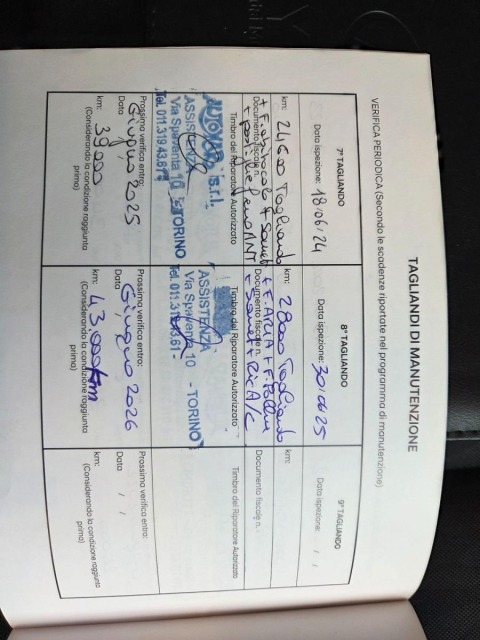 TAGLIANDI DI MANUTENZIONE
VERIFICA PERIODICA (Secondo le scadenze riportate nel programma di manutenzione)
7° TAGLIANDO
Data ispezione: 18/06/24
km: 24500 Tagliando
Documento fiscale n.
Timbro del Riparatore Autorizzato
AUTOVAR s.r.l.
ASSISTENZA
Via Spalvanta 10 - TORINO
Tel. 011.319.43.61
Prossima verifica entro:
Data Giugno 2025
km: 39000
(Considerando la condizione raggiunta
prima)
8° TAGLIANDO
Data ispezione: 30/06/25
km: 28000 Tagliando
Documento fiscale n.
+ F. ARIA + F. Pollini
Timbro del Riparatore Autorizzato
ASSISTENZA
Via Spalvanta 10 - TORINO
Tel. 011.319.43.61
Prossima verifica entro:
Data Giugno 2026
km: 43.000 km
(Considerando la condizione raggiunta
prima)
9° TAGLIANDO
Data ispezione: / /
km:
Documento fiscale n.
Timbro del Riparatore Autorizzato
Prossima verifica entro:
Data / /
km:
(Considerando la condizione raggiunta
prima)